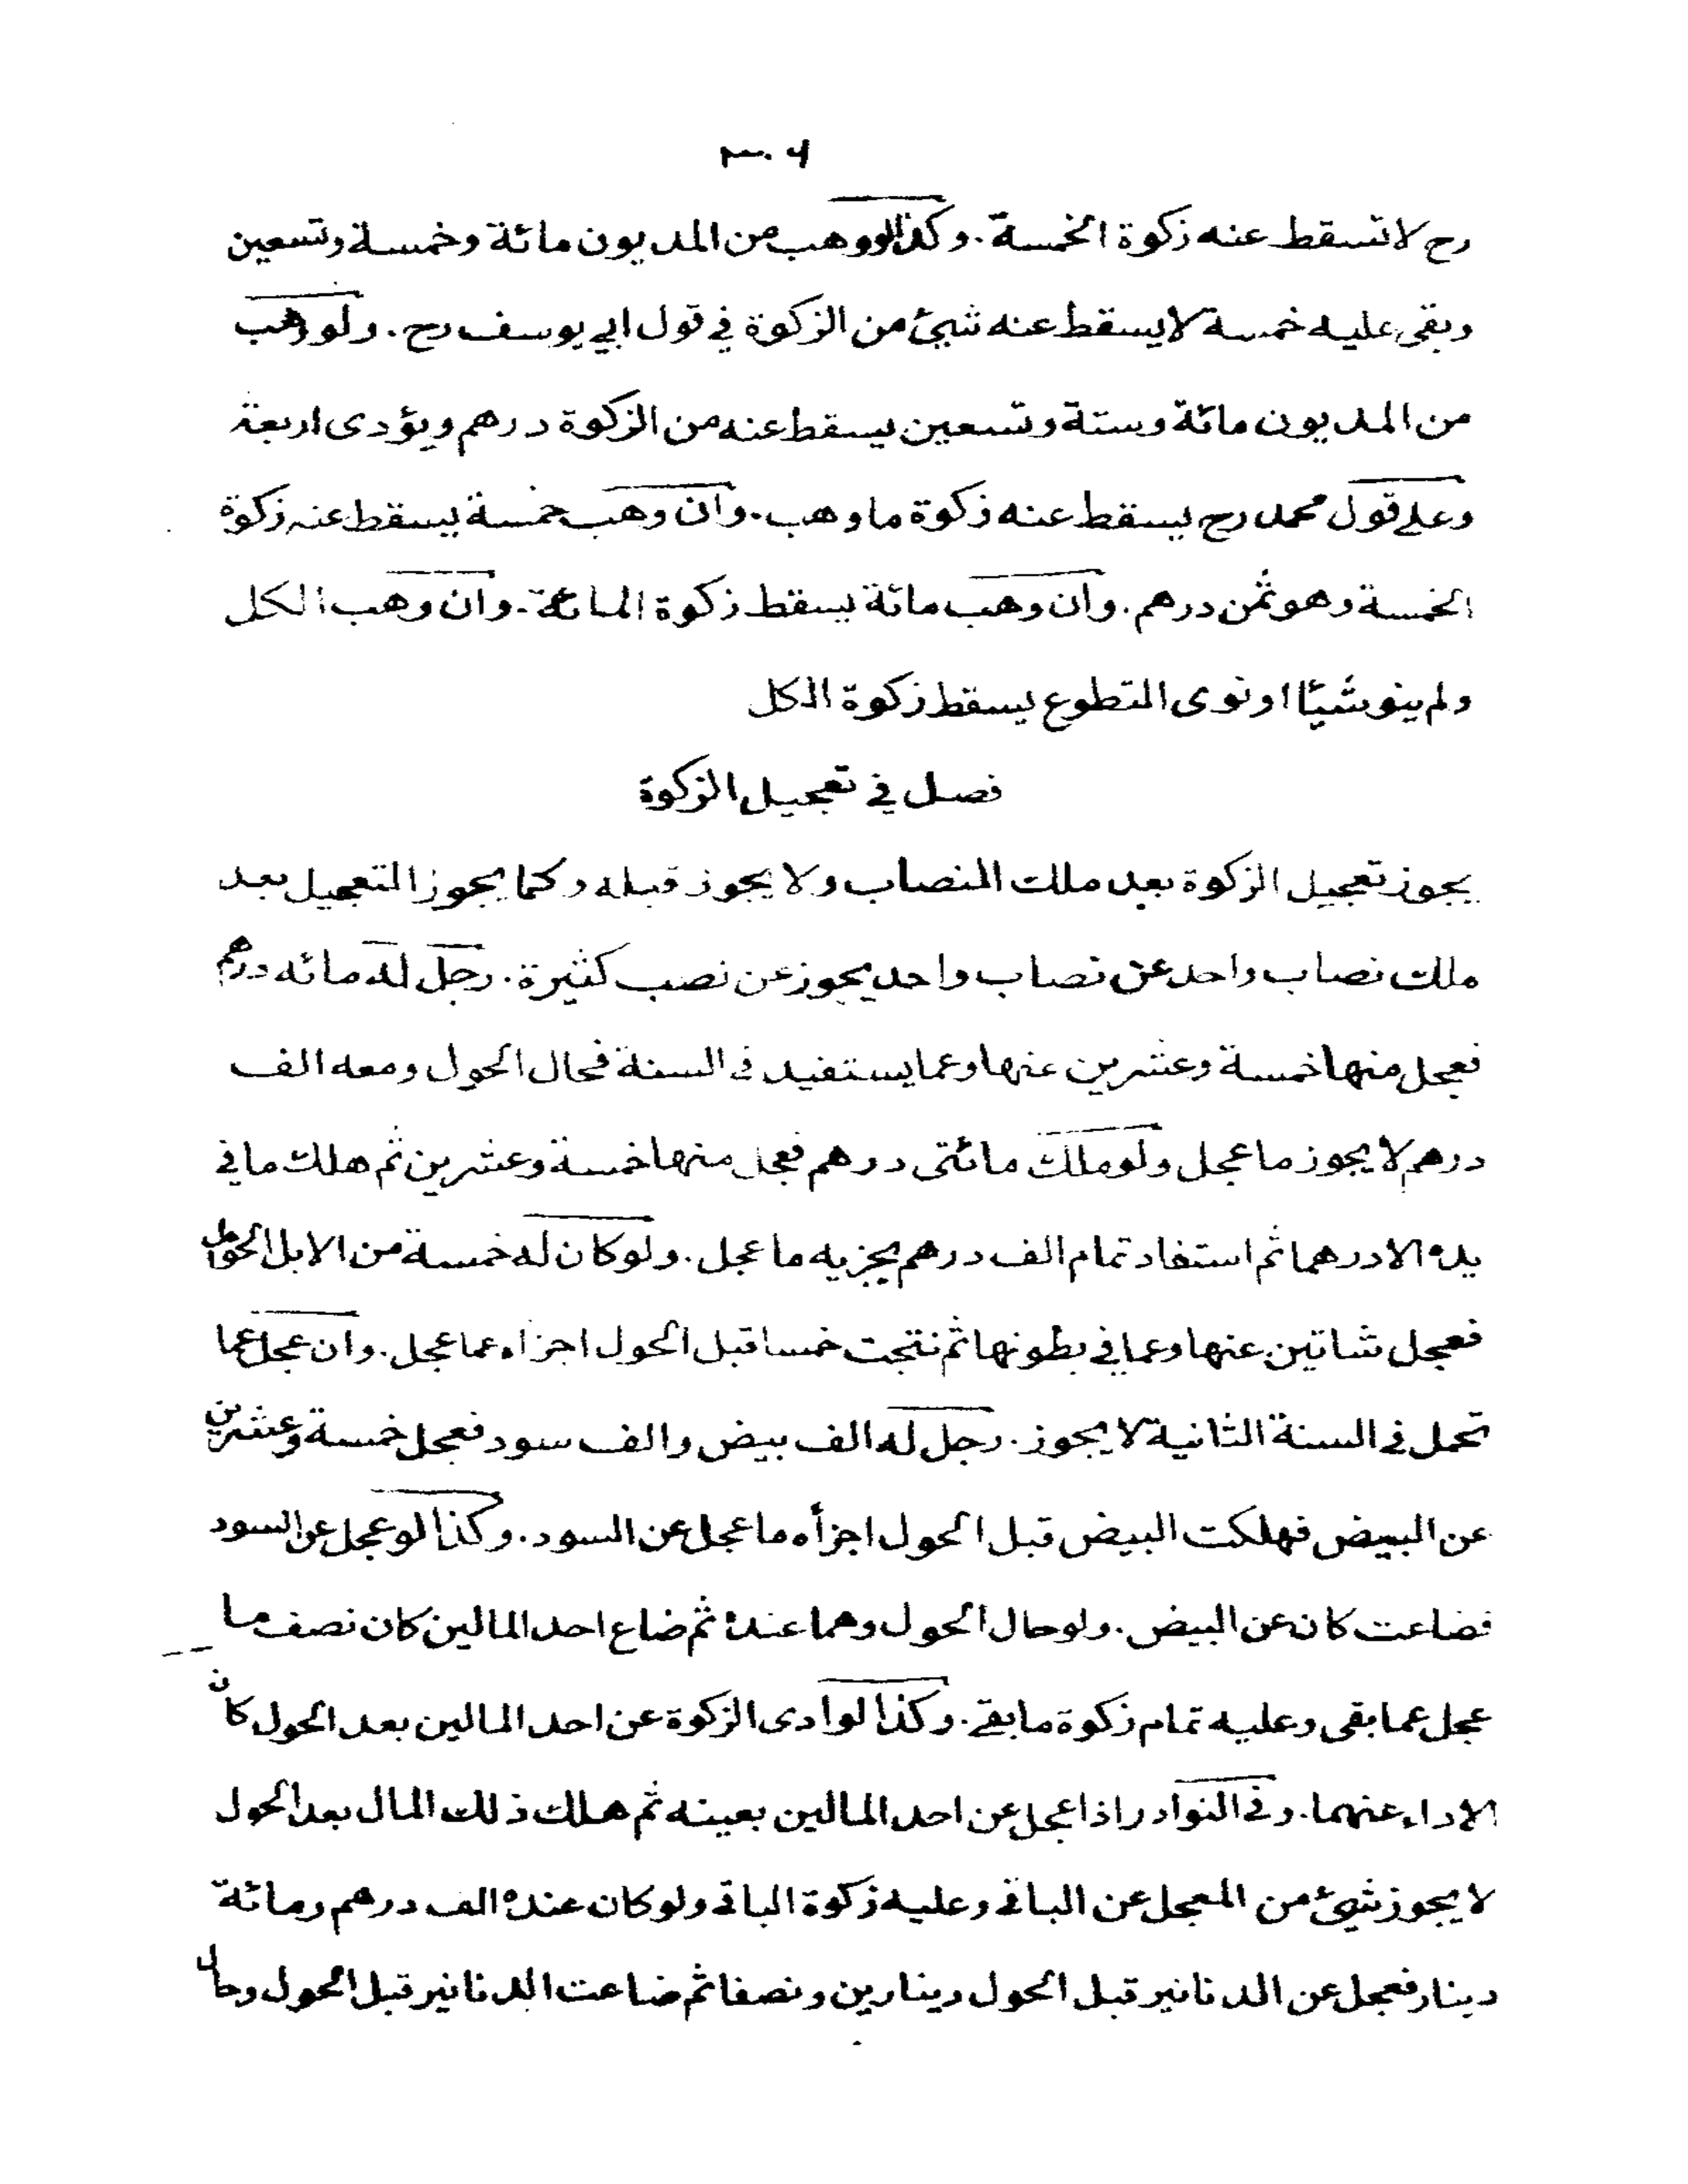 ٣٠٦
رح لا تسقط عنه زكوة الخمسة. وكذا لو وهب من المديون مائة وخمسة وتسعين
وبقى عليه خمسة لا يسقط عنه شيئ من الزكوة في قول ابي يوسف رح. ولو وهب
من المديون مائة وستة وتسعين يسقط عنه من الزكوة درهم ويؤدى اربعة
وعلى قول محمد رح يسقط عنه زكوة ما وهب. وان وهب خمسة يسقط عنه زكوة
الخمسة وهو ثمن درهم. وان وهب مائة يسقط زكوة المائة. وان وهب الكل
ولم ينو شيئا او نوى التطوع يسقط زكوة الكل
فصل في تعجيل الزكوة
يجوز تعجيل الزكوة بعد ملك النصاب ولا يجوز قبله وكما يجوز التعجيل بعد
ملك نصاب واحد عن نصاب واحد يجوز عن نصب كثيرة. رجل له مائه درهم
فعجل منها خمسة وعشرين عنها وعما يستفيد في السنة فحال الحول ومعه الف
درهم لا يجوز ما عجل ولو ملك مائتى درهم فعجل منها خمسة وعشرين ثم هلك ما في
يده الا درهما ثم استفاد تمام الف درهم يجزيه ما عجل. ولو كان له خمسة من الابل الحوامل
فعجل شاتين عنها وعما في بطونها ثم نتجت خمسا قبل الحول اجزاه عما عجل. وان عجل عما
تحمل في السنة الثانية لا يجوز. رجل له الف بيض والف سود فعجل خمسة وعشرين
عن البيض فهلكت البيض قبل الحول اجزأه ما عجل عن السود. وكذا لو عجل عن السود
فضاعت كان عن البيض. ولو حال الحول وهما عنده ثم ضاع احد المالين كان نصف ما
عجل عما بقى وعليه تمام زكوة ما بقي. وكذا لو ادى الزكوة عن احد المالين بعد الحول كان
الاداء عنهما. وفي النوادر اذا عجل عن احد المالين بعينه ثم هلك ذلك المال بعد الحول
لا يجوز شيئ من المعجل عن الباقي وعليه زكوة الباقي ولو كان عنده الف درهم ومائة
دينار فعجل عن الدنانير قبل الحول دينارين ونصفا ثم ضاعت الدنانير قبل الحول وحال